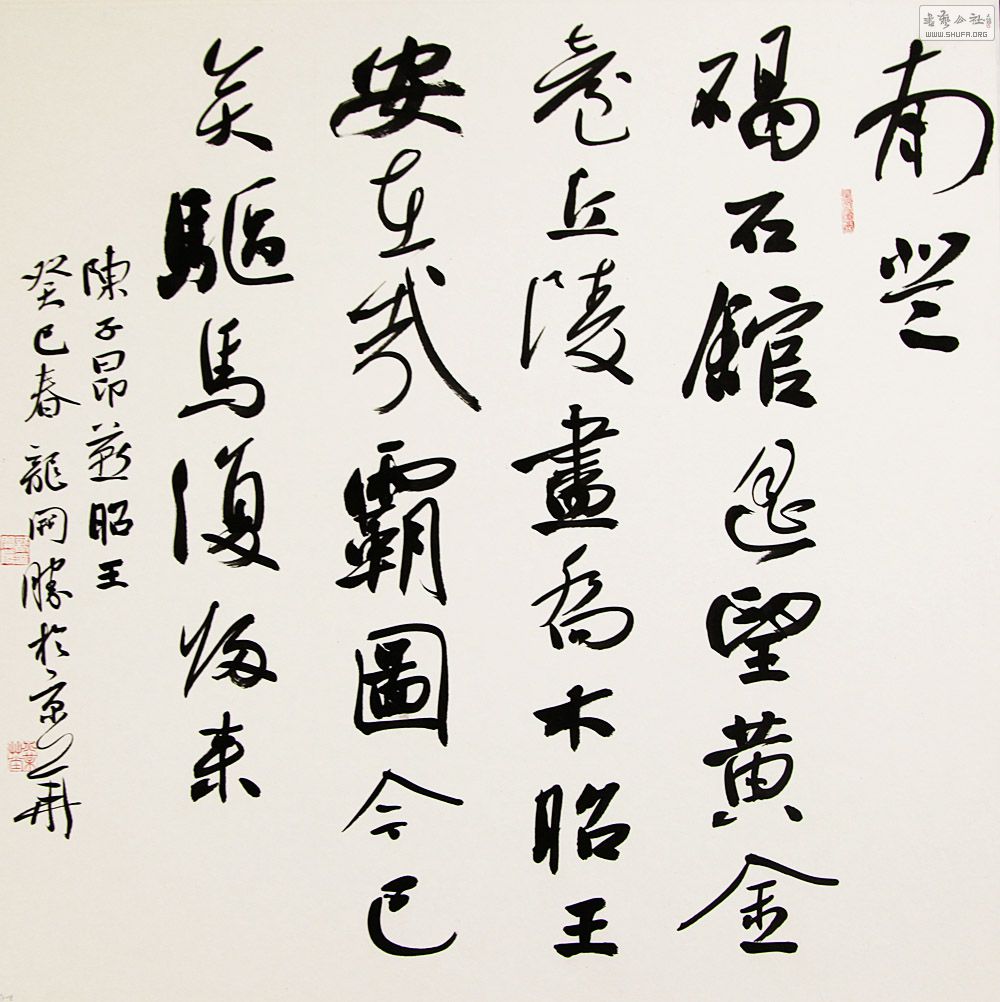 南登
碣石館遙望黄金
臺丘陵畫喬木昭王
安在哉霸圖今已
矣驅馬復歸來
陳子昂燕昭王
癸巳春龍開勝於京華
書藝公社
WWW.SHUFA.ORG